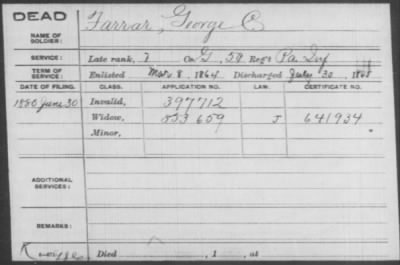 DEAD
NAME OF SOLDIER: Farrar, George C.
SERVICE: Late rank, Co. G, 58 Reg't Pa. Inf
TERM OF SERVICE: Enlisted Mar. 8, 1864. Discharged 30, 1865
DATE OF FILING. CLASS. APPLICATION NO. LAW. CERTIFICATE NO.
1880 June 30 Invalid, 397712
Widow, 853659 J 641934
Minor,
ADDITIONAL SERVICES:
REMARKS:
Died , 1 , at